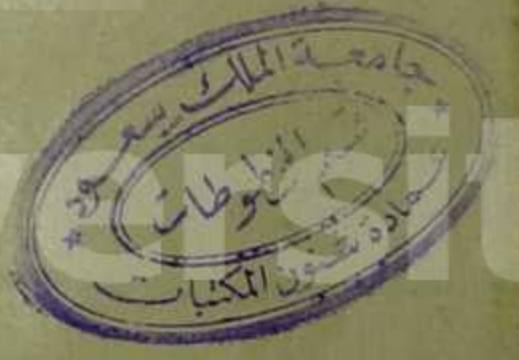 جامعة الملك سعود
المخطوطات
عمادة شئون المكتبات
versit